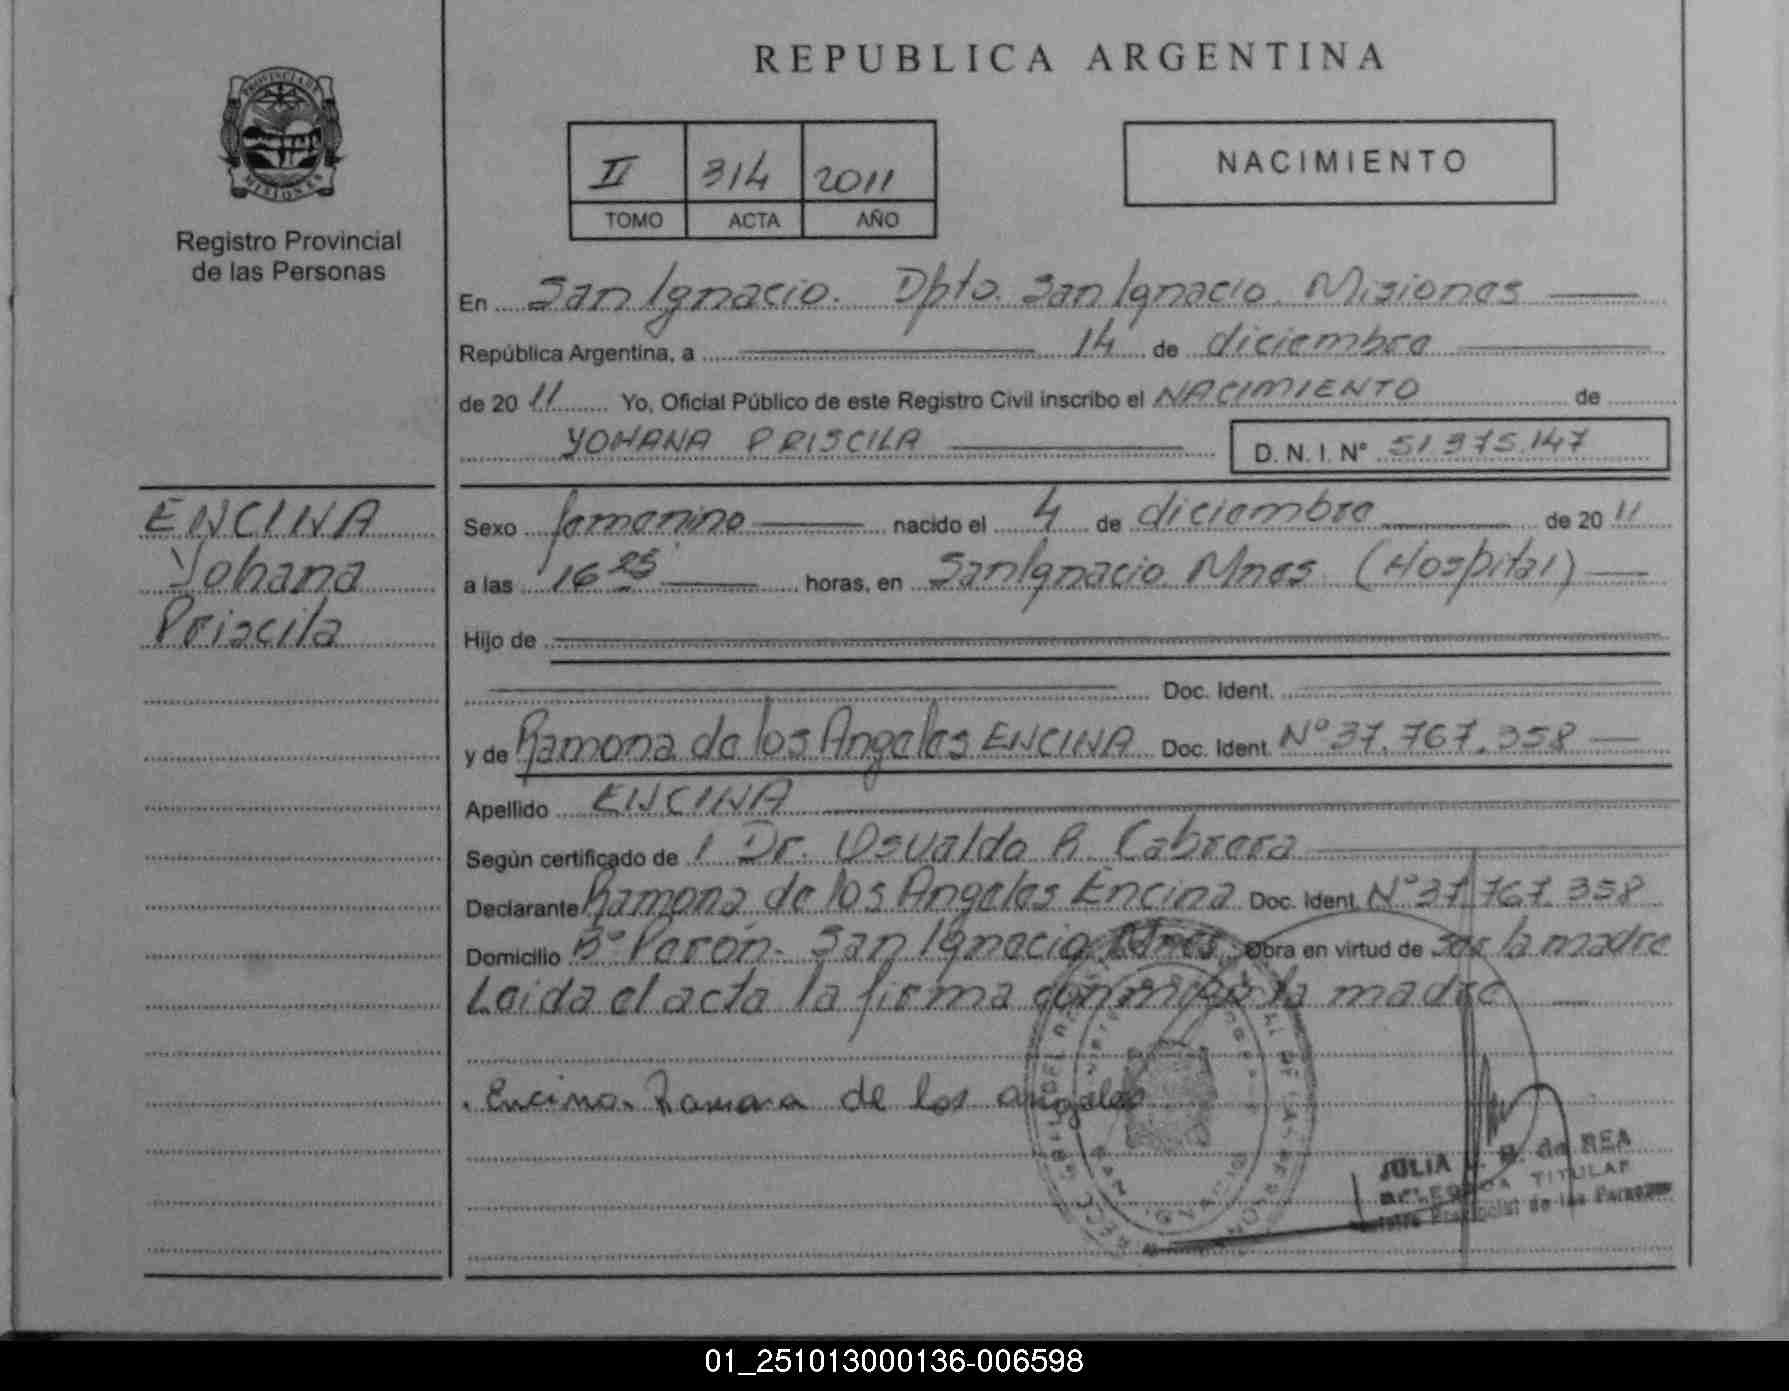 REPUBLICA ARGENTINA
PROVINCIA DE
MISIONES
Registro Provincial
de las Personas
II 314 2011
TOMO ACTA AÑO
NACIMIENTO
En San Ignacio. Dpto. San Ignacio. Misiones
República Argentina, a 14 de diciembre
de 2011 Yo, Oficial Público de este Registro Civil inscribo el NACIMIENTO de
YOHANA PRISCILA D. N. I. Nº 51.375.147
ENCINA
Yohana
Priscila
Sexo femenino nacido el 4 de diciembre de 2011
a las 16 25 horas, en San Ignacio Mnes. (Hospital)
Hijo de
Doc. Ident.
y de Ramona de los Angeles ENCINA Doc. Ident. Nº 37.767.358
Apellido ENCINA
Según certificado de l Dr. Osvaldo R. Cabrera
Declarante Ramona de los Angeles Encina Doc. Ident. Nº 37.767.358
Domicilio Bº Perón. San Ignacio Mnes. Obra en virtud de ser la madre
Leida el acta la firma conmigo la madre
Encina. Ramona de los angeles
JULIA de REA
DELEGADA TITULAR
Registro Provincial de las Personas
SAN IGNACIO
01_251013000136-006598